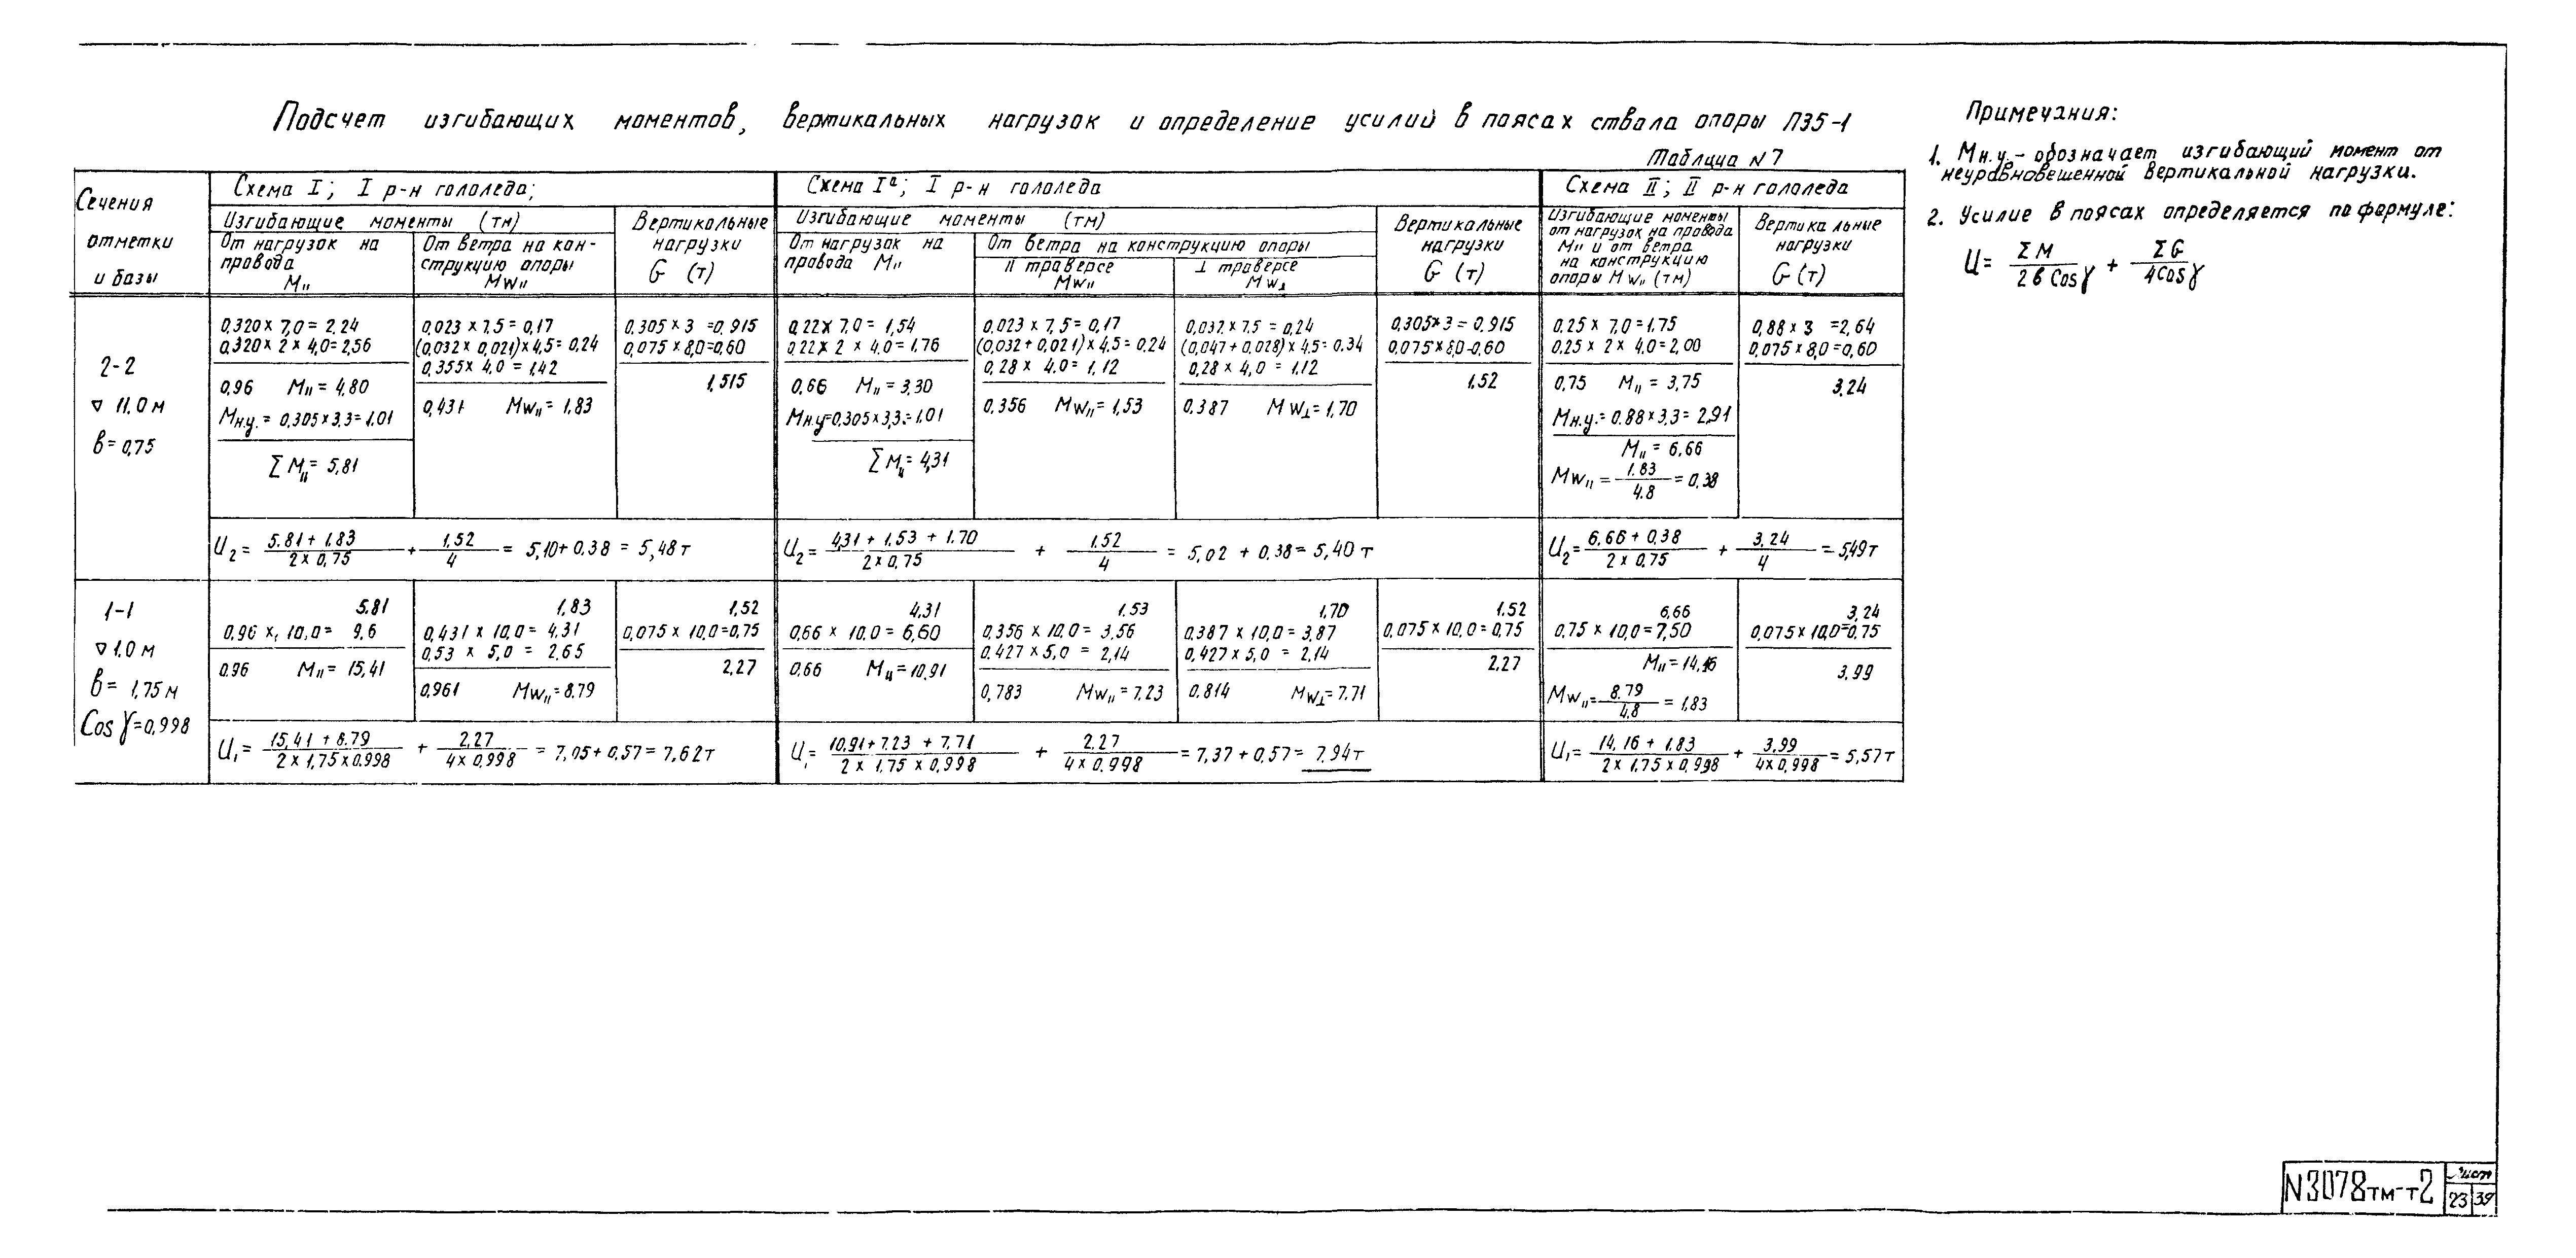 Подсчет изгибающих моментов, вертикальных нагрузок и определение усилий в поясах ствола опоры П35-1
Таблица N 7
Сечения
отметки
и базы
Схема I; I р-н гололеда;
Изгибающие моменты (тм)
От нагрузок на
провода
M₁₁
От ветра на кон-
струкцию опоры
MW₁₁
Вертикальные
нагрузки
G (т)
Схема Iª; I р-н гололеда
Изгибающие моменты (тм)
От нагрузок на
провода M₁₁
От ветра на конструкцию опоры
II траверсе
MW₁₁
⊥ траверсе
MW⊥
Вертикальные
нагрузки
G (т)
Схема II; II р-н гололеда
Изгибающие моменты
от нагрузок на провода
M₁₁ и от ветра
на конструкцию
опоры MW₁₁ (тм)
Вертикальные
нагрузки
G (т)
2-2
▽ 11.0 м
в=0,75
0,320 x 7,0 = 2,24
0,320 x 2 x 4,0=2,56
0,96 M₁₁ = 4,80
Mн.у. = 0,305x3,3=1.01
∑ M₁₁ = 5,81
0,023 x 7.5 = 0,17
(0,032 x 0,021)x4,5= 0,24
0,355x 4,0 = 1,42
0,431 MW₁₁= 1,83
0,305 x 3 =0,915
0,075 x 8,0=0,60
1,515
0,22x 7,0= 1,54
0,22x 2 x 4,0=1,76
0,66 M₁₁ = 3,30
Mн.у=0,305x3,3=1,01
∑ M₁₁= 4,31
0,023 x 7,5=0,17
(0,032 + 0,021)x4,5=0,24
0,28 x 4,0= 1,12
0,356 MW₁₁=1,53
0,032 x 7,5 = 0,24
(0,047 + 0,028)x4,5=0.34
0,28 x 4,0 = 1,12
0,387 MW⊥=1,70
0,305x3 = 0,915
0,075x8,0=0,60
1,52
0,25 x 7,0=1,75
0,25 x 2 x 4,0=2,00
0,75 M₁₁ = 3,75
Mн.у.= 0.88x3,3= 2,91
M₁₁ = 6,66
MW₁₁ = 1.83 / 4.8 = 0,38
0,88 x 3 =2,64
0,075x8,0=0,60
3,24
U₂ = 5.81 + 1.83 / 2 x 0,75 + 1,52 / 4 = 5,10+ 0,38 = 5,48 т
U₂ = 4,31 + 1,53 + 1.70 / 2 x 0,75 + 1,52 / 4 = 5,02 + 0,38= 5,40 т
U₂= 6.66 + 0,38 / 2 x 0,75 + 3,24 / 4 = 5,49т
1-1
▽ 1.0 м
в = 1,75 м
Cos γ=0,998
5.81
0,96 x 10,0= 9,6
0.96 M₁₁ = 15,41
1,83
0,431 x 10,0= 4,31
0,53 x 5,0 = 2,65
0,961 MW₁₁= 8.79
1,52
0,075 x 10,0=0,75
2,27
4,31
0,66 x 10,0= 6,60
0,66 M₁₁=10,91
1,53
0,356 x 10,0= 3,56
0,427x 5,0 = 2,14
0,783 MW₁₁ = 7,23
1,70
0,387 x 10,0= 3,87
0,427x 5,0 = 2,14
0.814 MW⊥=7.71
1.52
0,075 x 10,0 = 0,75
2,27
6,66
0,75 x 10,0=7,50
M₁₁=14,16
MW₁₁= 8.79 / 4,8 = 1,83
3,24
0,075x10,0=0,75
3,99
U₁ = 15,41 + 8.79 / 2 x 1,75 x 0.998 + 2,27 / 4 x 0,998 = 7,05+ 0,57= 7,62т
U₁= 10,91+ 7.23 + 7,71 / 2 x 1,75 x 0,998 + 2,27 / 4 x 0.998 = 7,37 + 0,57= 7,94т
U₁= 14,16 + 1.83 / 2 x 1.75 x 0.998 + 3,99 / 4x 0,998 = 5,57т
Примечания:
1. Mн.у. - обозначает изгибающий момент от
неуравновешенной вертикальной нагрузки.
2. Усилие в поясах определяется по формуле:
U= ∑ M / 2в Cosγ + ∑ G / 4Cosγ
N3078тм-т2
Лист
23 39